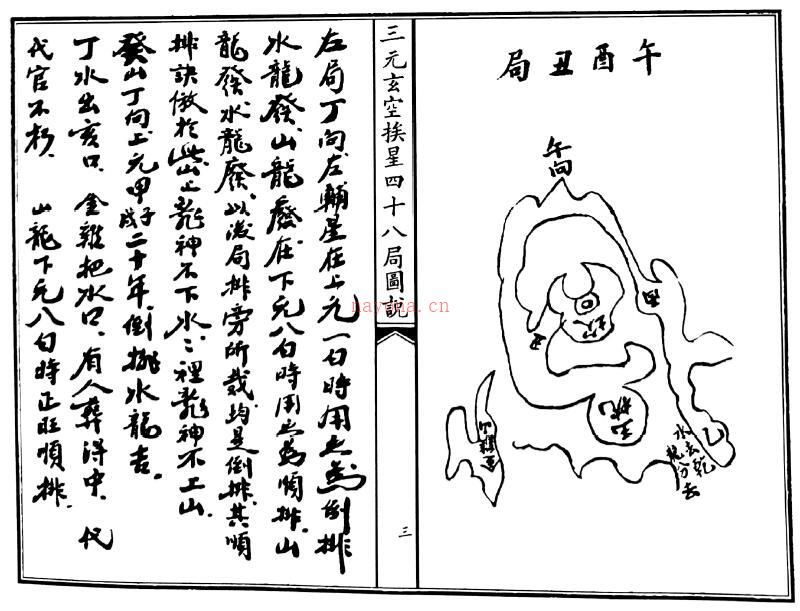 午酉丑局
午向
酉
丑
金雞山
水去乾
龍分去
三元玄空挨星四十八局圖說
三
左局丁向左輔星在上元一白時用之為倒排
水龍發山龍廢在下元八白時用之為順排山
龍發水龍廢以後局排旁所載均是倒排其順
排訣倣於此山上龍神不下水〻裡龍神不上山
癸山丁向上元甲子戌二十年倒排水龍吉
丁水出亥口金雞把水口有人葬得中代
代官不朽 山龍下元八白時正旺順排
nayona.cn